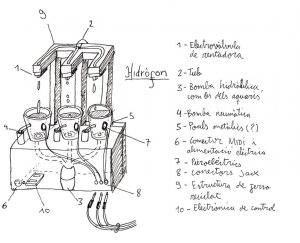 9
2
1
Hidrògon
1
4
5
6
7
8
10
3
1 - Electrovàlvula de rentadora
2 - Tub
3 - Bomba hidràulica com les dels aquaris
4 - Bomba neumàtica
5 - Poals metàlics (?)
6 - Conector MIDI i alimentació elèctrica
7 - Piezoelèctrics
8 - Conectors Jack
9 - Estructura de ferro reciclat
10 - Electrònica de control